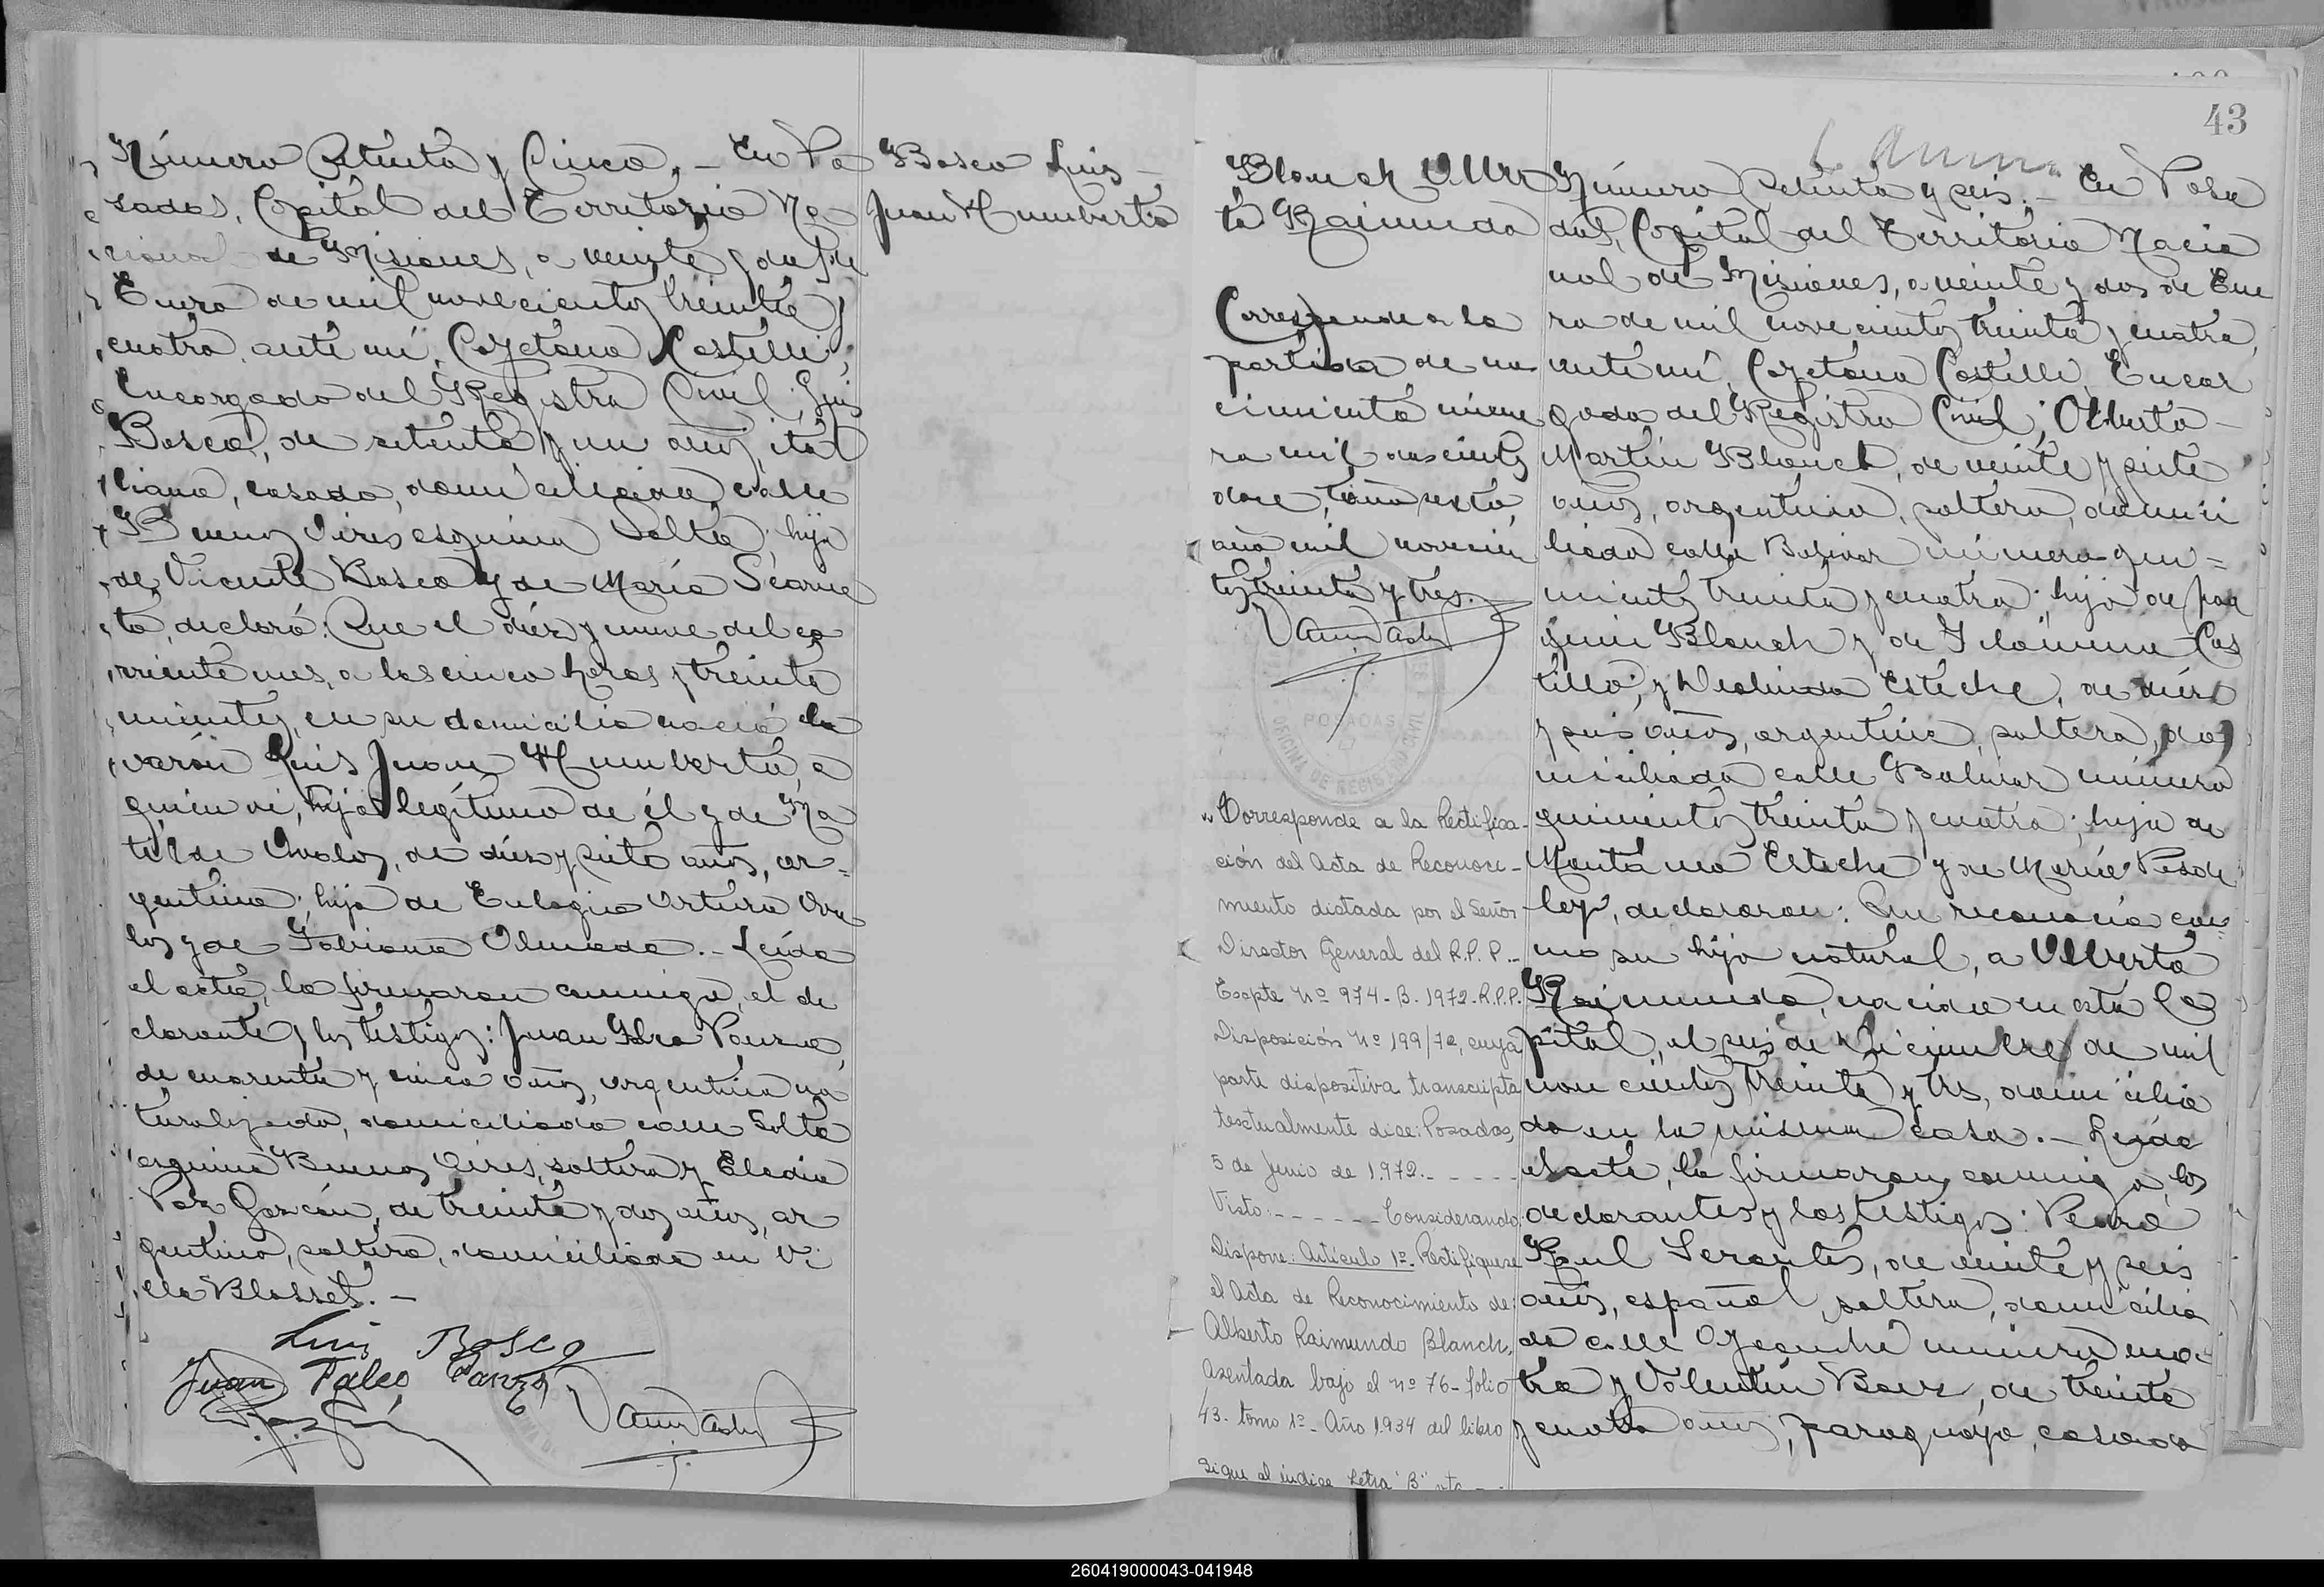 Número Setenta y Cinco. - En Po
sadas, Capital del Territorio Na
cional de Misiones, a veinte y dos de
Enero de mil novecientos treinta y
cuatro, ante mí, Cayetano Castelli,
Encargado del Registro Civil, Luis
Bosco, de setenta y un años, ita
liano, casado, domiciliado calle
Buenos Aires esquina Salta; hijo
de Vicente Bosco y de María
declaró: Que el diez y nueve del co
rriente mes, a las cinco horas y treinta
minutos, en su domicilio nació el
varón Luis Juan Humberto, a
quien vi, hijo legítimo de él y de Ma
tilde Avalos, de diez y siete años, ar=
gentina; hija de Eulogio Arturo Ava
los y de Fabiana Olmedo. - Leída
el acta, la firmaron conmigo, el de
clarante y los testigos: Juan
de cuarenta y cinco años, argentino na
turalizado, domiciliado calle Salta
esquina Buenos Aires, soltero y Eladio
Paz Garzón, de treinta y dos años, ar
gentino, soltero, domiciliado en Vi
lla Blosset. -
Luis Bosco
Juan
Bosco Luis -
Juan Humberto
43
Blanch Alber
to Raimundo
Corresponde a la
partida de na
cimiento núme
ro mil doscientos
doce, tomo sexto,
año mil novecien
tos treinta y tres.
POSADAS
OFICINA DE REGISTRO CIVIL
"Corresponde a la Rectifica-
ción del Acta de Reconoci-
miento dictada por el Señor
Director General del R.P.P.-
Expte Nº 974-B-1972-R.P.P.
Disposición Nº 199/72, cuya
parte dispositiva transcripta
textualmente dice: Posadas,
5 de Junio de 1.972.- - - - -
Visto:- - - - - - Considerando:
Dispone: Artículo 1º- Rectifíquese
el Acta de Reconocimiento de:
Alberto Raimundo Blanch,
asentada bajo el nº 76- folio
43- tomo 1º- Año 1.934 del libro
Sigue al índice Letra "B"
Número Setenta y seis. - En Posa
das, Capital del Territorio Nacio
nal de Misiones, a veinte y dos de Ene
ro de mil novecientos treinta y cuatro,
ante mí, Cayetano Castelli, Encar
gado del Registro Civil, Alberto -
Martín Blanch, de veinte y siete
años, argentino, soltero, domici
liado calle Bolivar número qui=
nientos treinta y cuatro; hijo de Joa
quin Blanch y de Filomena Cas
tillo; y Deolinda Esteche, de diez
y seis años, argentina, soltera, do
miciliada calle Bolivar número
quinientos treinta y cuatro; hija de
Esteche y de María
declararon: Que reconocía co=
mo su hijo natural, a Alberto
Raimundo, nacido en esta Ca
pital, el seis de Diciembre de mil
novecientos treinta y tres, domicilia
do en la misma casa. - Leída
el acta, la firmaron conmigo, los
declarantes y los testigos: Pedro
Raul Serantes, de veinte y seis
años, español, soltero, domicilia
do calle Ayacucho número cua=
tro y Valentín Baez, de treinta
y cuatro años, paraguayo, casado
260419000043-041948